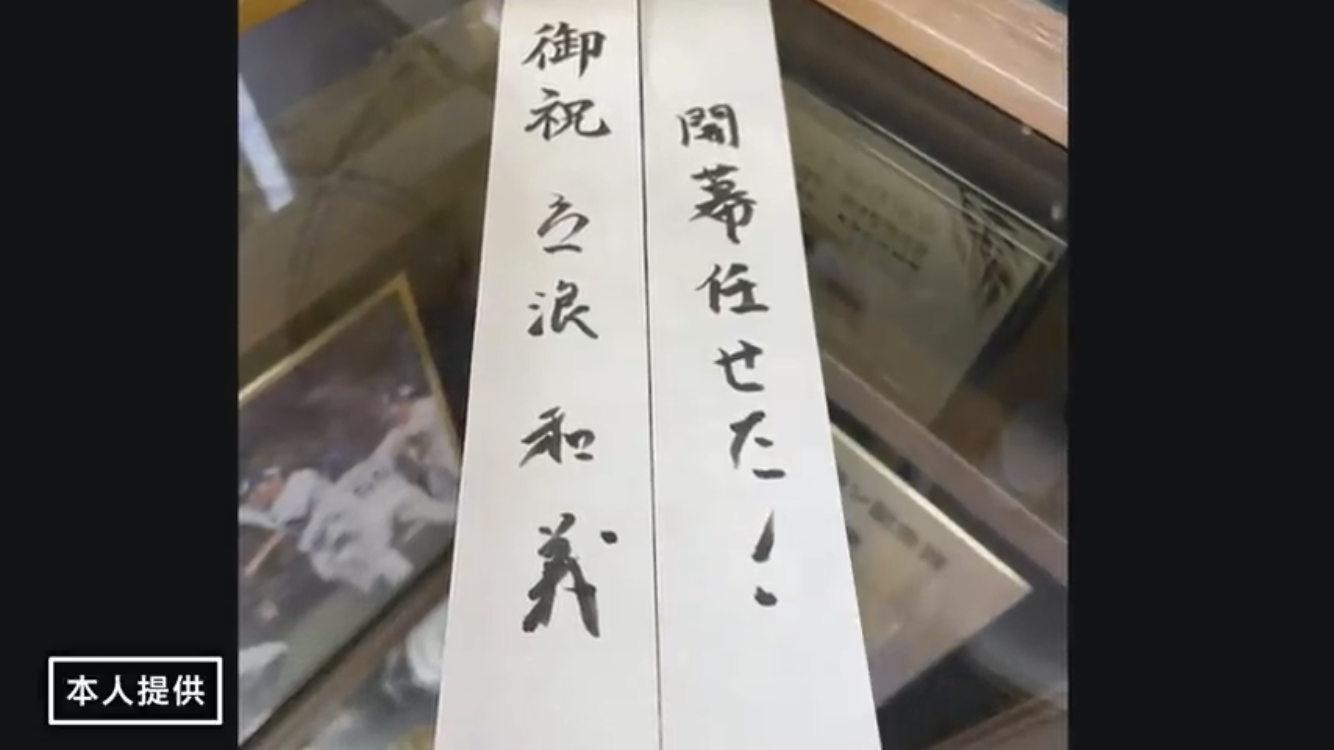 開幕任せた!
御祝 立浪和義
本人提供